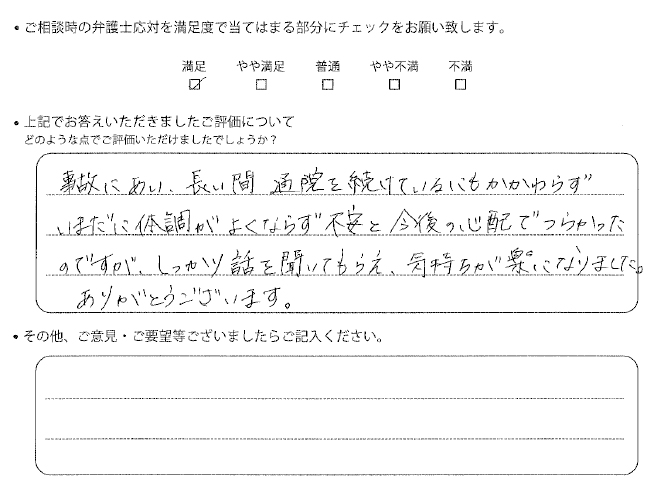 • ご相談時の弁護士応対を満足度で当てはまる部分にチェックをお願い致します。
満足 やや満足 普通 やや不満 不満
☑ □ □ □ □
• 上記でお答えいただきましたご評価について
どのような点でご評価いただけましたでしょうか？
事故にあい、長い間 通院を続けているにもかかわらず
いまだに体調がよくならず不安と今後の心配でつらかった
のですが、しっかり話を聞いてもらえ、気持ちが楽になりました。
ありがとうございます。
• その他、ご意見・ご要望等ございましたらご記入ください。